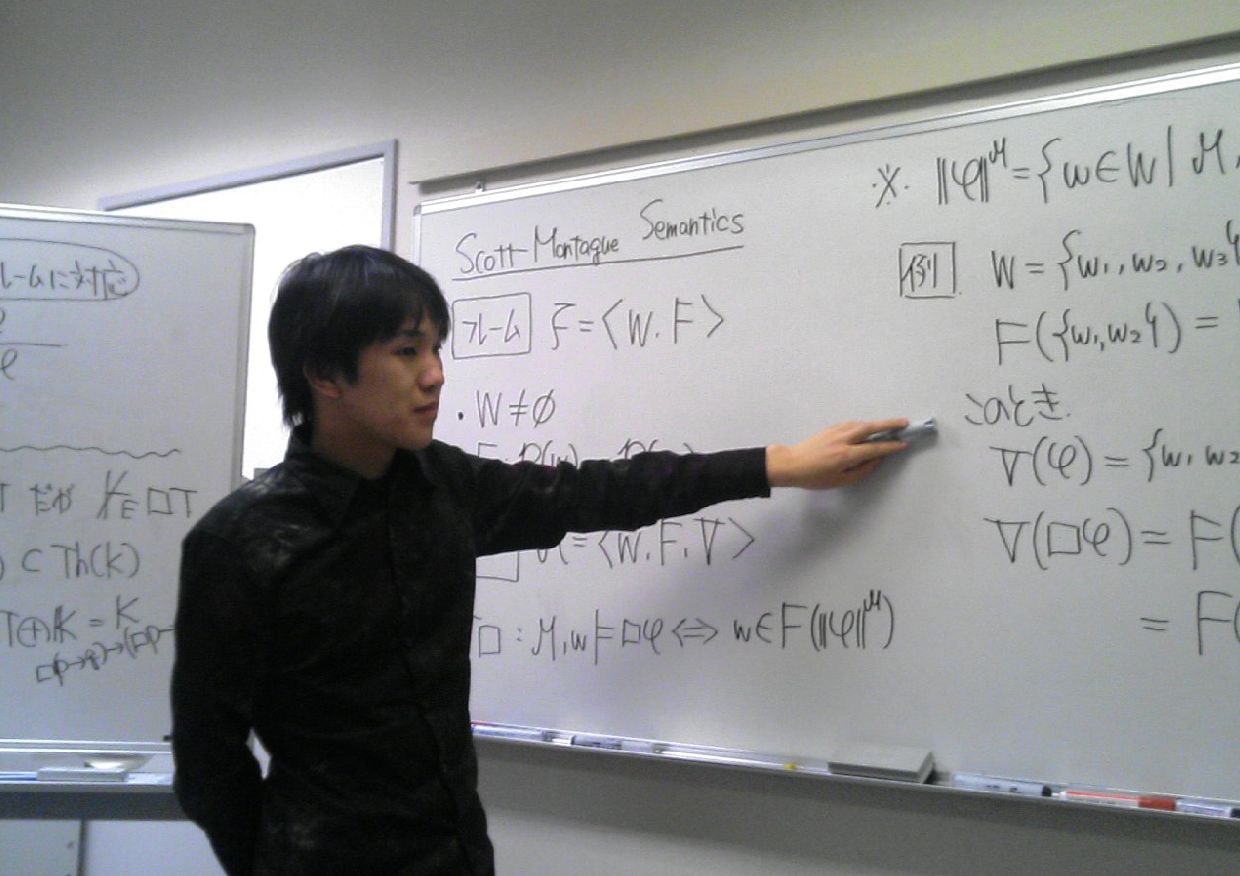 レームに対応
φ
T だが ⊬E □T
) ⊂ Th(K)
T⊕K = K
□(p→q)→(□p→
Scott-Montague Semantics
フレーム F = <W. F>
・ W ≠ ∅
= <W. F. V>
□ : M, w ⊨ □φ ⇔ w ∈ F(||φ||^M)
※. ||φ||^M = {w ∈ W | M,
例 W = {w₁, w₂, w₃}
F({w₁, w₂}) =
このとき.
V(φ) = {w₁ w₂
V(□φ) = F(
= F(